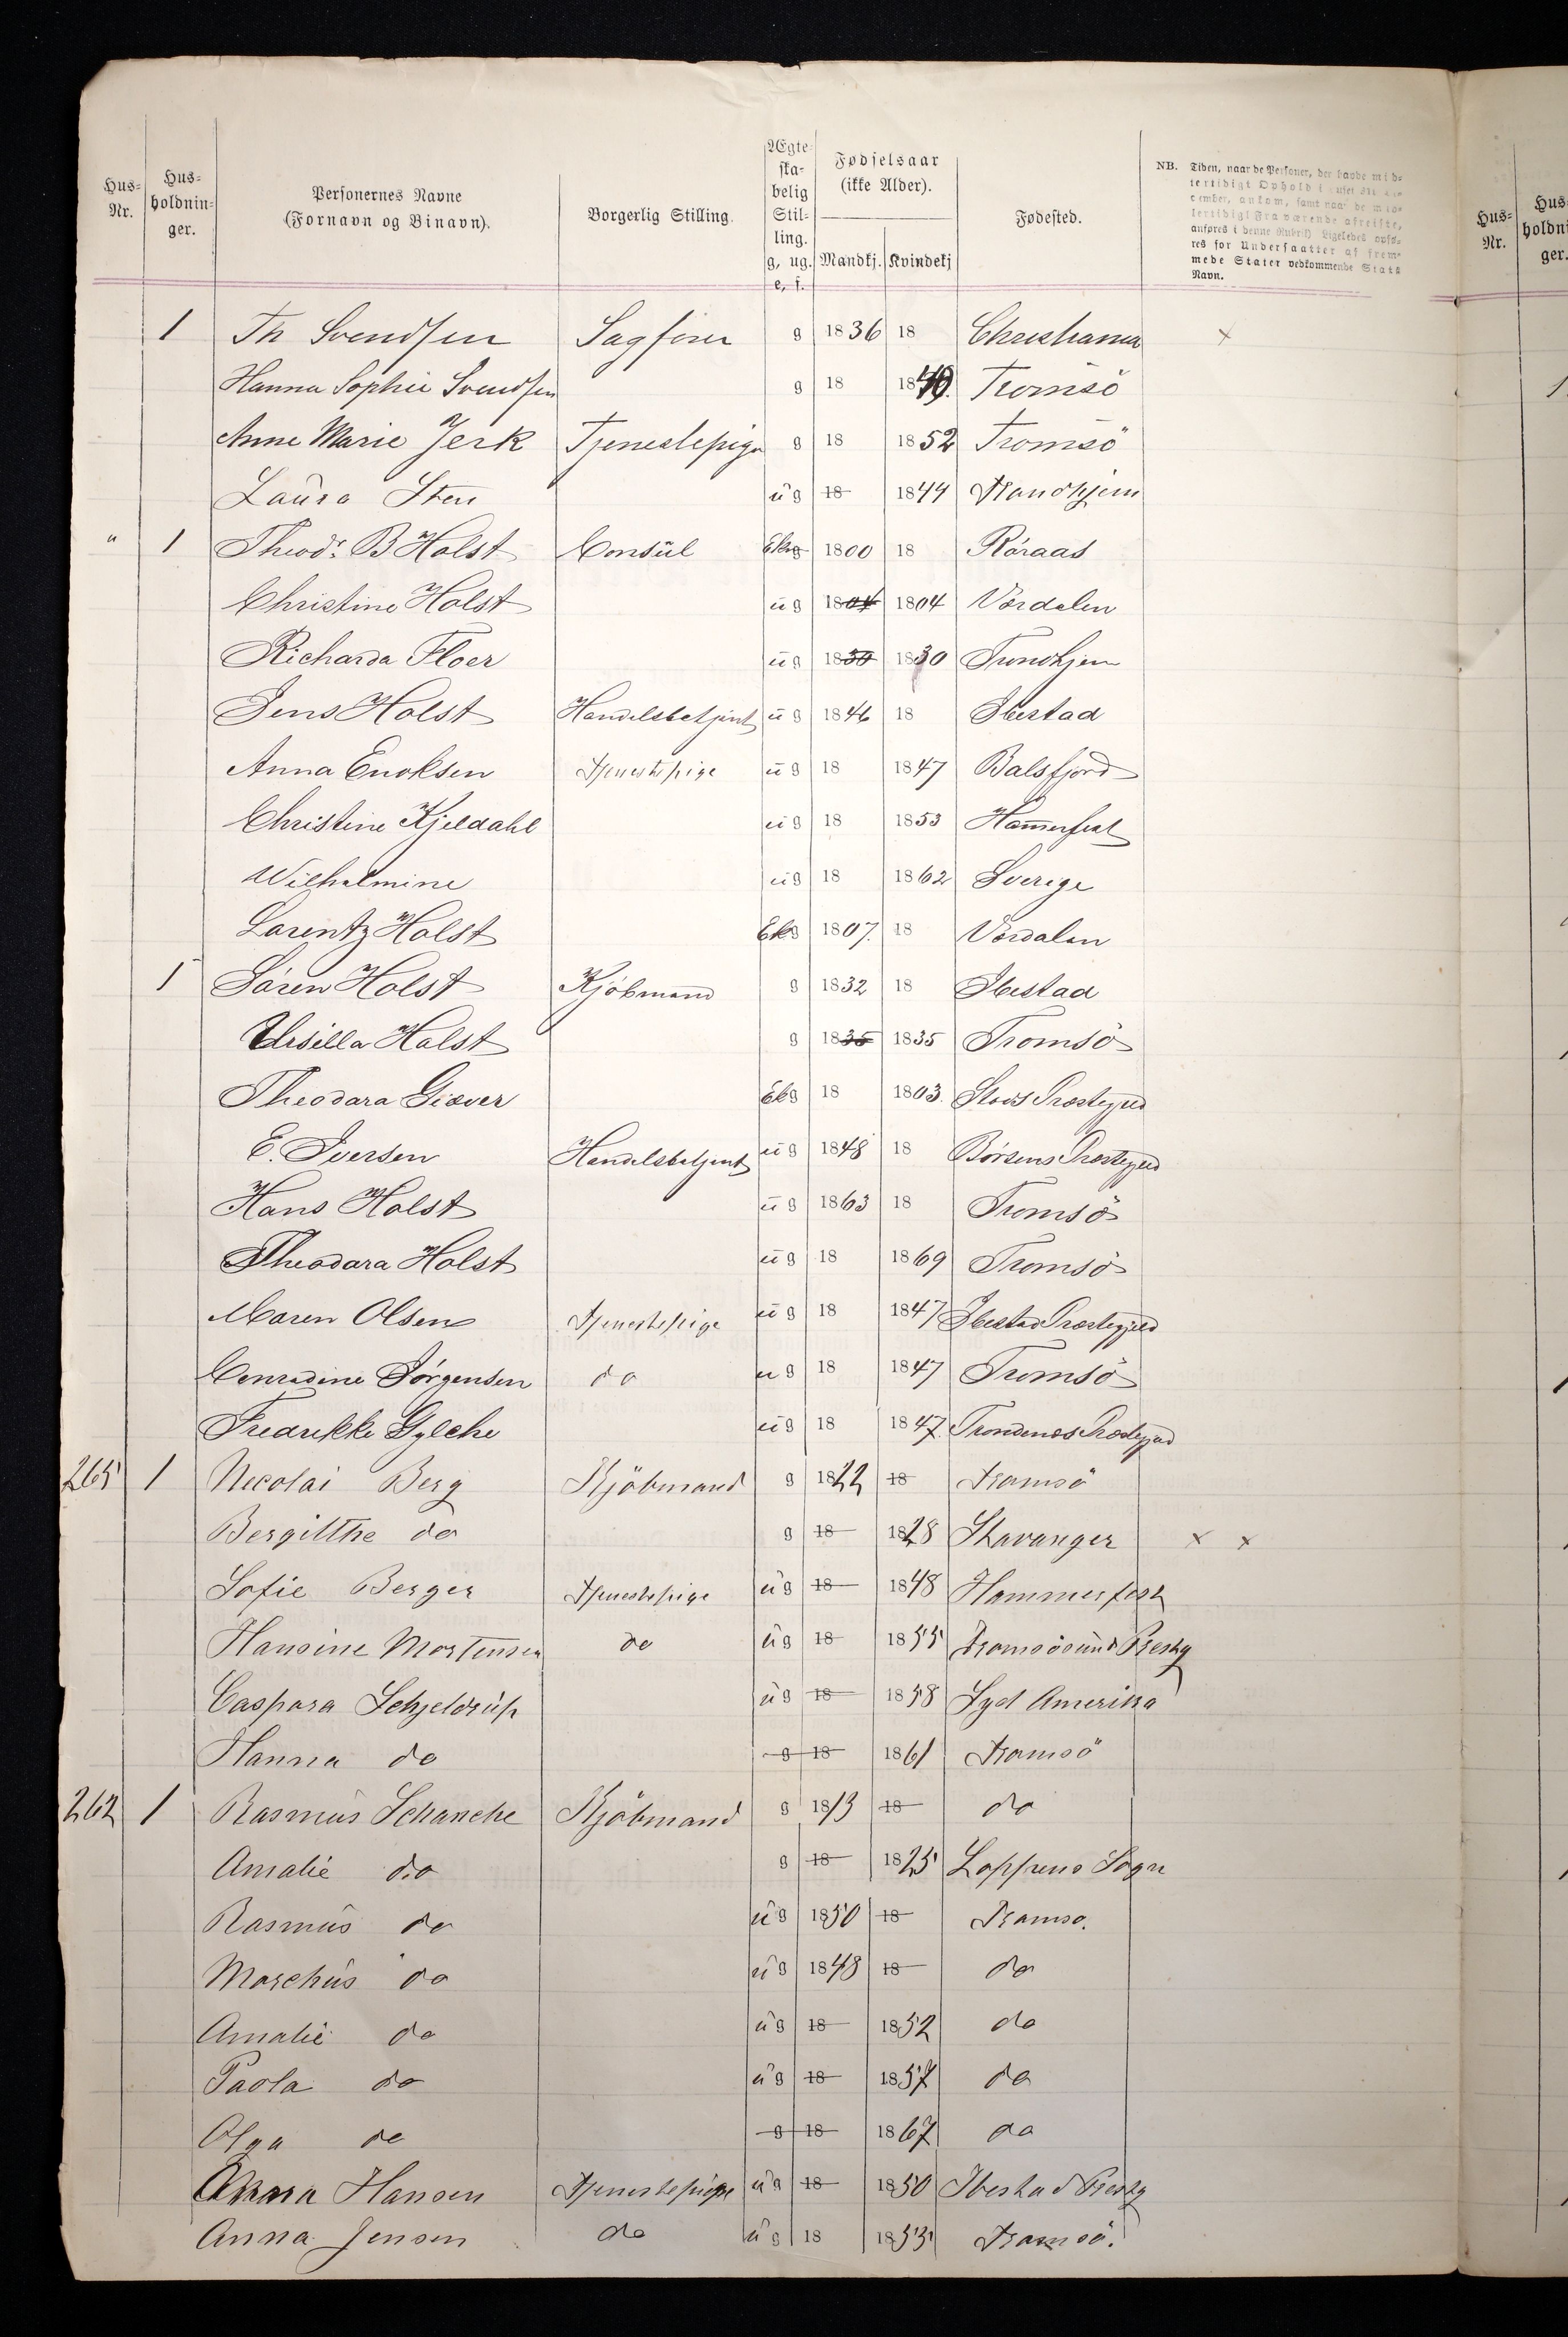 Hus-Nr. Hus-holdnin-ger. Personernes Navne (Fornavn og Binavn). Borgerlig Stilling. Ægte-ska-belig Stil-ling. g, ug. e, f. Fødselsaar (ikke Alder). Mandkj. Kvindekj Fødested. NB. Tiden, naar de Personer, der havde mid-
anføres i denne Rubrik) Ligeledes anfø-
res for Undersaatter af frem-
mede Stater vedkommende Stats
Navn.
1 Th Svendsen Sagfører g 1836 18 Christiania x
Hanna Sophie Svendsen g 18 Tromsö
Anne Marie Jerk Tjenestepige g 18 1852 Tromsö
Laura Sten ug 18 1844 Trondhjem
" 1 Theodr. B Holst Consül Ekg 1800 18 Röraas
Christine Holst ug 1804 1804 Værdalen
Richarda Floer ug 1830 1830 Trondhjem
Jens Holst Handelsbetjent ug 1846 18 Ibestad
Anna Enoksen Tjenestepige ug 18 1847 Balsfjord
Christine Kjeldahl ug 18 1853 Hammerfest
Wilhelmine ug 18 1862 Sverige
Lorentz Holst Ekg 1807. 18 Værdalen
1 Sören Holst Kjöbmand g 1832 18 Ibestad
Ursilla Holst g 1835 1835 Tromsö
Theodora Giæver Ekg 18 1803. Stods Præstegjeld
E. Iversen Handelsbetjent ug 1848 18 Börsens Præstegjeld
Hans Holst ug 1863 18 Tromsö
Theodora Holst ug 18 1869 Tromsö
Maren Olsen Tjenestepige ug 18 1847 Ibestad Præstegjeld
Conradine Jörgensen do ug 18 1847 Tromsö
Fredrikke Gylche ug 18 1847. Trondenæs Præstegjeld
265 1 Necolai Berg Kjöbmand g 1822 18 Tromsö
Bergitthe do g 18 1828 Stavanger x x
Sofie Berger Tjenestepige ug 18 1848 Hammerfest
Hansine Mortensen do ug 18 1855 Tromsösund Prestg
Caspara Schjeldrüp ug 18 1858 Syd Amerika
Hanna do g 18 1861 Tromsö
262 1 Rasmüs Schanche Kjöbmand g 1813 18 do
Amalie do g 18 1825 Loppens Sogn
Rasmüs do ug 1850 18 Tromso.
Marchüs do ug 1848 18 do
Amalie do ug 18 1852 do
Paola do ug 18 1857 do
Olga do g 18 1867 do
Hansen Tjenestepige ug 18 1850 Ibestad Prestg
Anna Jensen do ug 18 1853 Tromsö.
Hus-Nr.